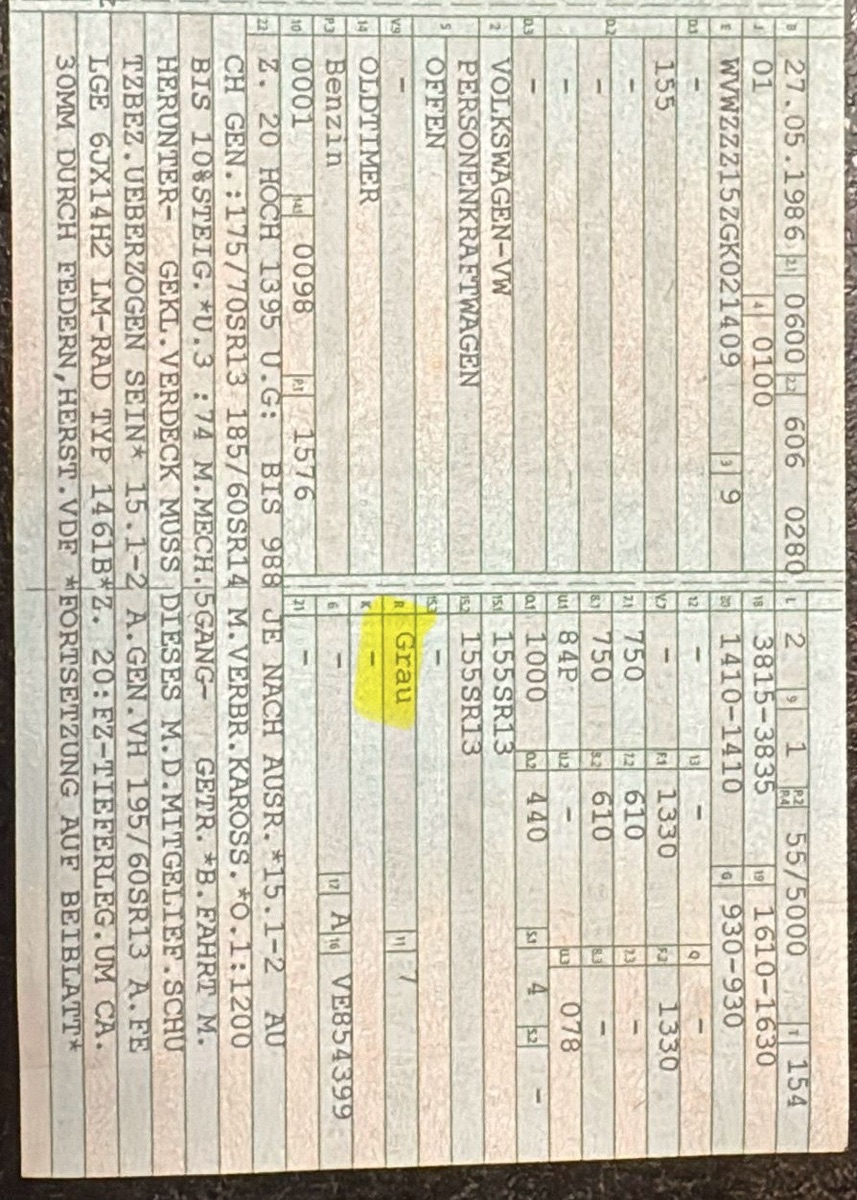 B 27.05.1986 2.1 0600 2.2 606 0280
J 01 4 0100
E WVWZZZ15ZGK021409 3 9
D.1 -
155
D.2 -
-
-
D.3 -
2 VOLKSWAGEN-VW
PERSONENKRAFTWAGEN
5 OFFEN
V.9 -
14 OLDTIMER
P.3 Benzin
10 0001 14.1 0098 P.1 1576
L 2 9 1 P.2 P.4 55/5000 T 154
18 3815-3835 19 1610-1630
20 1410-1410 G 930-930
12 - 13 - Q -
V.7 - F.1 1330 F.2 1330
7.1 750 7.2 610 7.3 -
8.1 750 8.2 610 8.3 -
U.1 84P U.2 - U.3 078
O.1 1000 O.2 440 S.1 4 S.2 -
15.1 155SR13
15.2 155SR13
15.3 -
R Grau 11 7
K -
6 - 17 A 16 VE854399
21 -
22 Z. 20 HOCH 1395 U.G: BIS 988 JE NACH AUSR.*15.1-2 AU
CH GEN.:175/70SR13 185/60SR14 M.VERBR.KAROSS.*O.1:1200
BIS 10%STEIG.*U.3 :74 M.MECH.5GANG- GETR.*B.FAHRT M.
HERUNTER- GEKL.VERDECK MUSS DIESES M.D.MITGELIEF.SCHU
TZBEZ.UEBERZOGEN SEIN* 15.1-2 A.GEN.VH 195/60SR13 A.FE
LGE 6JX14H2 LM-RAD TYP 1461B*Z. 20:FZ-TIEFERLEG.UM CA.
30MM DURCH FEDERN,HERST.VDF *FORTSETZUNG AUF BEIBLATT*